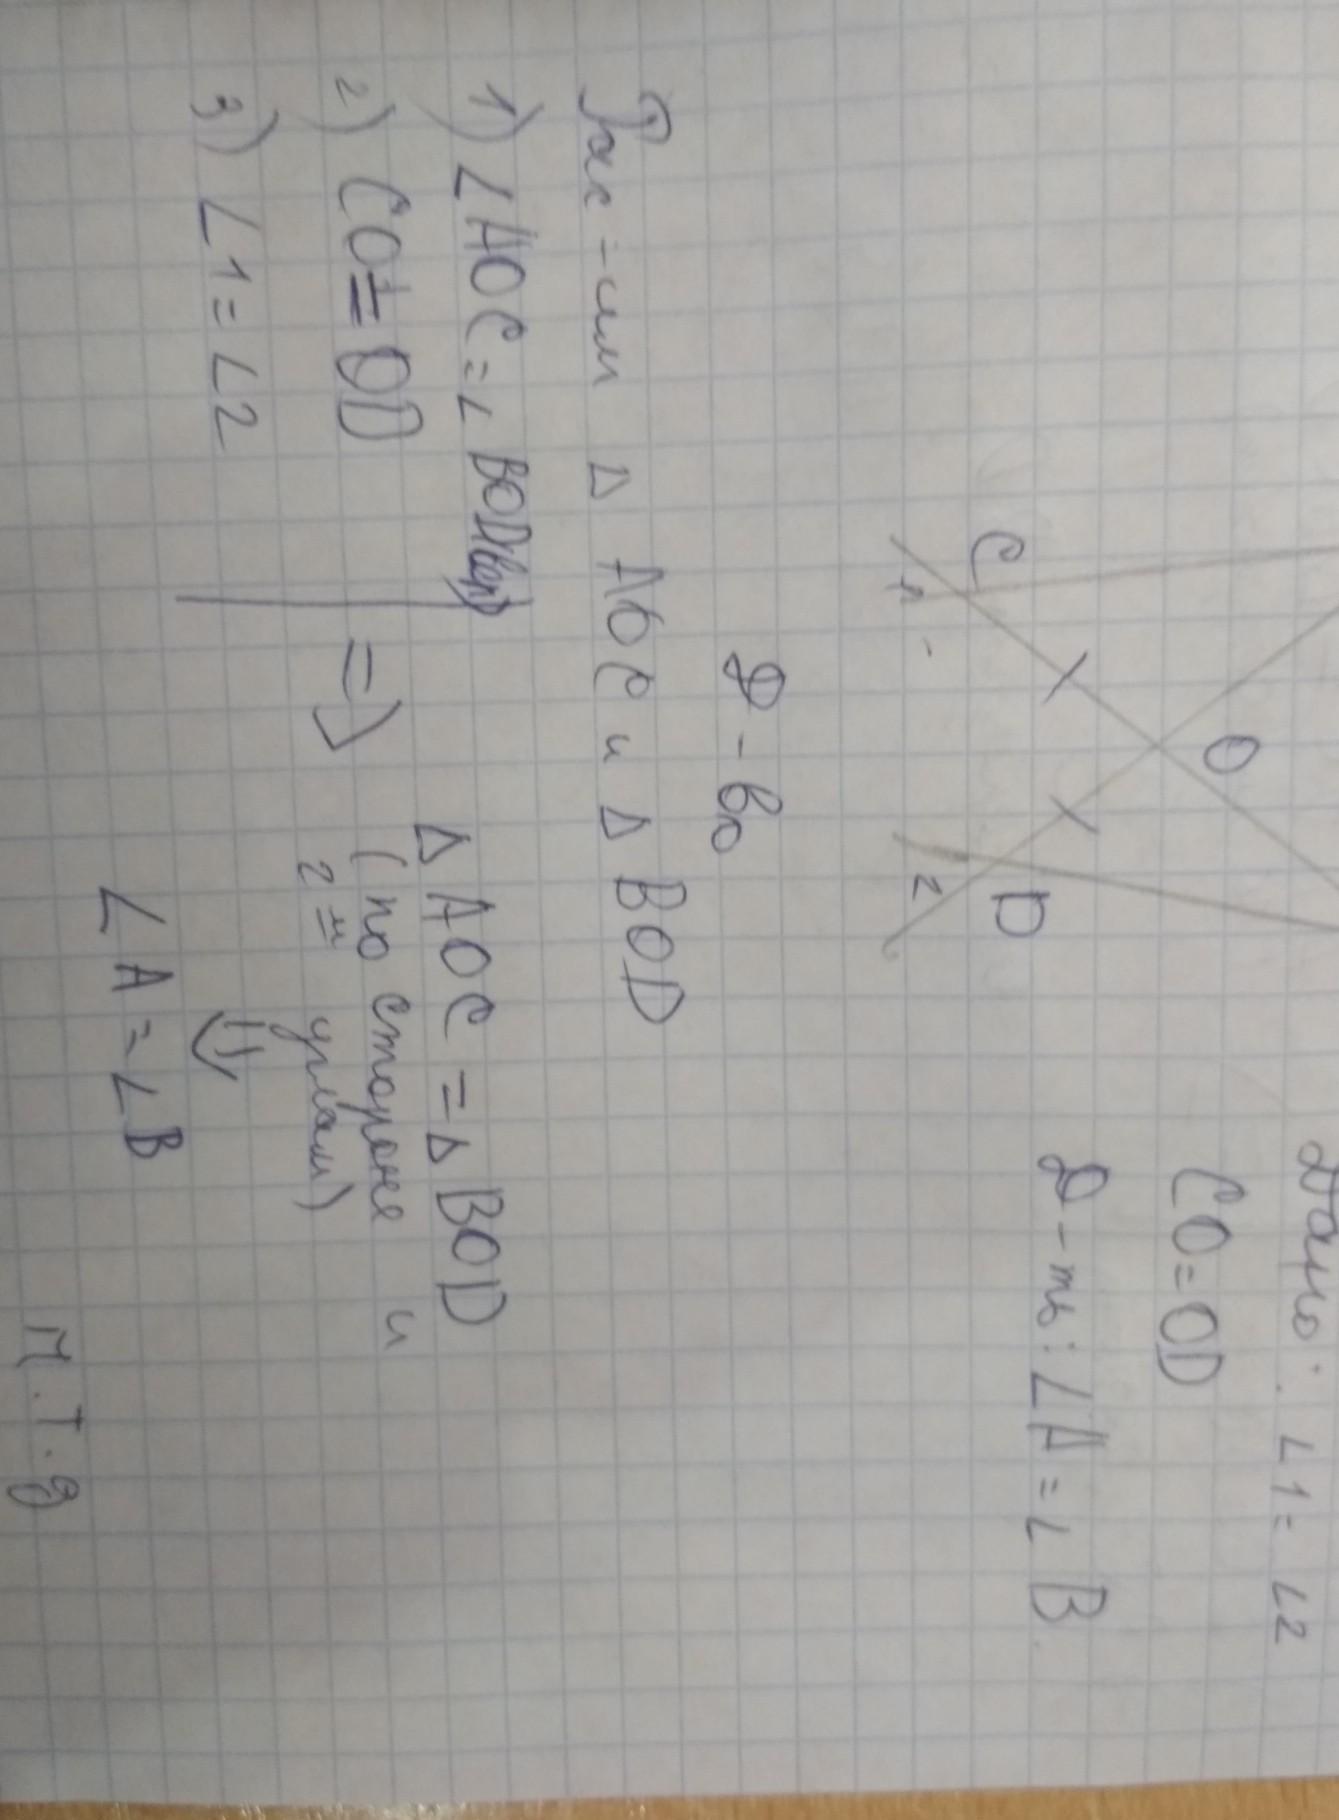 Дано: ∠1 = ∠2
CO = OD
Д-ть: ∠A = ∠B
O
C
D
1
2
Д-во
Рас-им Δ AOC и Δ BOD
1) ∠AOC = ∠BOD(вер)
2) CO = OD
3) ∠1 = ∠2
=>
Δ AOC = Δ BOD
(по стороне и
2 м углам)
⇓
∠A = ∠B
ч.т.д